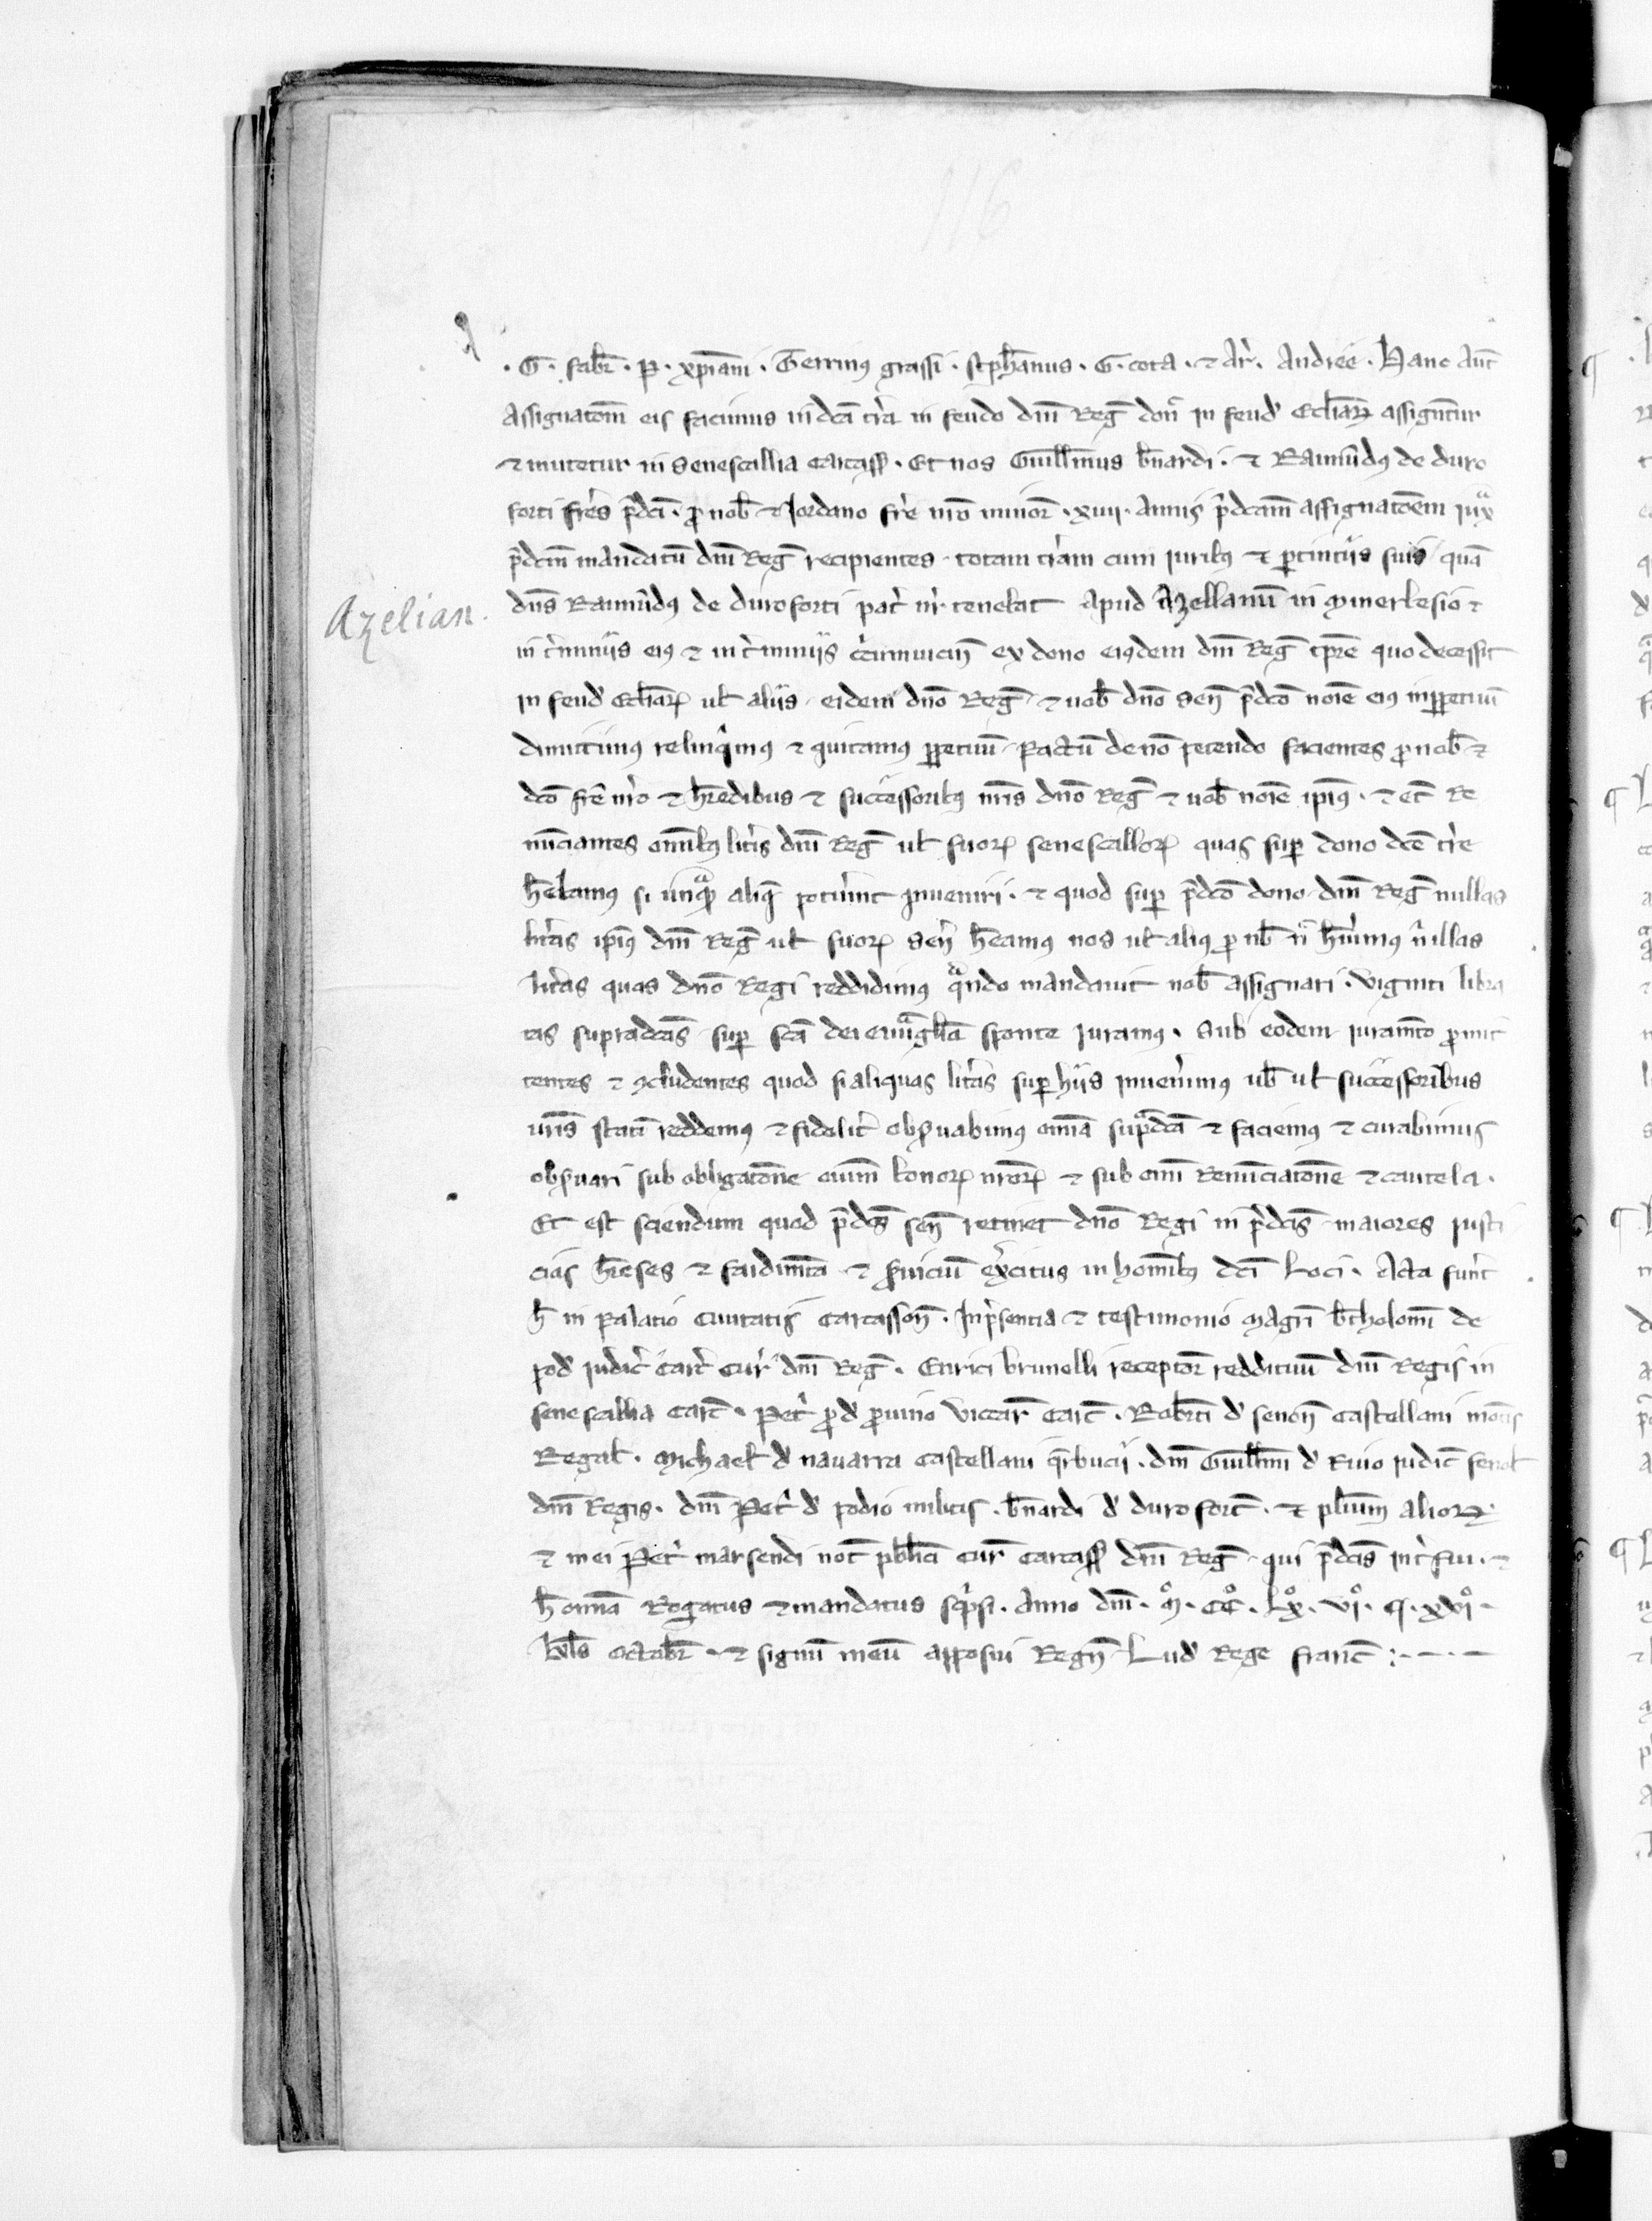 116
. G . fabr̄ . P . xp̄iani . Gerrinus grassi . steph̄anus . G . cota . ⁊ Ar̄ . Andree . Hanc aut̄
assignatōem eis facimus in dc̄a tr̄a in feudo dn̄i Reḡ don̄ in feud̄ eccl̄iarꝝ assignētur
⁊ mutetur in Senescallia Carcass̄ . Et nos Guill̄mus b̄nardi . ⁊ Raimūdus de duro
forti frēs p̄dc̄i . ꝓ nob̄ ⁊ Jordano fr̄e nr̄o minor̄ . xiiii . annis p̄dc̄am assignatōem iux̄
p̄dc̄m mandatū dn̄i Reḡ recipientes . totam tr̄am cum iuribus ⁊ ꝑtinētiis suis quā
dn̄s Raimūdus de duroforti pat̄ nr̄ tenebat apud Azellanū in Minerbesio ⁊
Azelian .
in t̄miniis eius ⁊ in t̄miniis c̄cumuicin̄ ex dono eiusdem dn̄i Reḡ tp̄re quo decessit
in feud̄ eccl̄iarꝝ ul̄ aliis . eidem dn̄o Reḡ . ⁊ uob̄ dn̄o sen̄ p̄dc̄o noīe eius inꝑpetuū
dimittimus relinq̄imus ⁊ quitamus ꝑpetuū . Pactū de nō petendo facientes ꝓ nob̄ ⁊
dc̄o fr̄e nr̄o ⁊ h̄redibus ⁊ successoribus nr̄is dn̄o Reḡ ⁊ uob̄ noīe ip̄ius . ⁊ et̄ re
nūciantes om̄ibus litt̄is dn̄i Reḡ ul̄ suorꝝ senescallorꝝ quas suꝑ dono dc̄e tr̄e
h̄ebamus si unq̄ aliq̄ pot̄unt inueniri . ⁊ quod suꝑ p̄dc̄o dono dn̄i Reḡ nullas
litt̄as ip̄ius dn̄i Reḡ ul̄ suorꝝ sen̄ h̄eamus nos ul̄ alius ꝓ nob̄ n̄ h̄uimus n̄ illas
litt̄as quas dn̄o Regi reddidimus q̄ndo mandauit nob̄ assignari . viginti libra
tas supradc̄as suꝑ sc̄a dei euāgl̄ia sponte iuramus . Sub eodem iuram̄to ꝓmit
tentes ⁊ ꝯcludentes quod si aliquas litt̄as suꝑ hiis inuen̄imus uob̄ ul̄ successoribus
ur̄is statī reddemus ⁊ fidelit̄ obs̄uabimus om̄ia sup̄dc̄a ⁊ faciemus ⁊ curabimus
obs̄uari sub obligatōne om̄iū bonorꝝ nr̄orꝝ ⁊ sub om̄i Renūciatōne ⁊ cautela .
Et est sciendum quod p̄dc̄s sen̄ retinet dn̄o Regi in p̄dc̄is maiores iusti
cias h̄eses ⁊ faidim̄ta ⁊ s̄uiciū ex̄citus in hom̄ibus dc̄i loci . Acta fuer̄t
h̄ in palatio Ciuitatis Carcasson̄ . In p̄sentia ⁊ testimonio magr̄i b̄tholomī de
pod̄ iudic̄ Carc̄ Cur̄ dn̄i Reḡ . Enrici brunelli receptor̄ reddituū dn̄i Regis in
senescallia Carc̄ . Pet̄ ꝓ d̄ ꝓuino vicar̄ Carc̄ . Rob̄ti d̄ senon̄ Castellani mōtis
Regal̄ . Michael̄ d̄ nauarra Castellani q̄rbucii . dn̄i Guill̄mi d̄ Riuo iudic̄
dn̄i Regis . dn̄i Pet̄ d̄ podio militis . b̄nardi d̄ duroforc̄ . ⁊ pl̄ium aliorꝝ
⁊ mei Pet̄ marsendi not̄ publici cur̄ Carcass̄ dn̄i Reḡ qui p̄dc̄is int̄fui . ⁊
h̄ om̄ia Rogatus ⁊ mandatus sc̄psi . Anno dn̄i . Mͦ . CCͦ . Lxͦ . viͦ . q . xviͦ .
kl̄s octobr̄ . ⁊ signū meū apposui Regn̄ Lud̄ Rege franc̄ : —